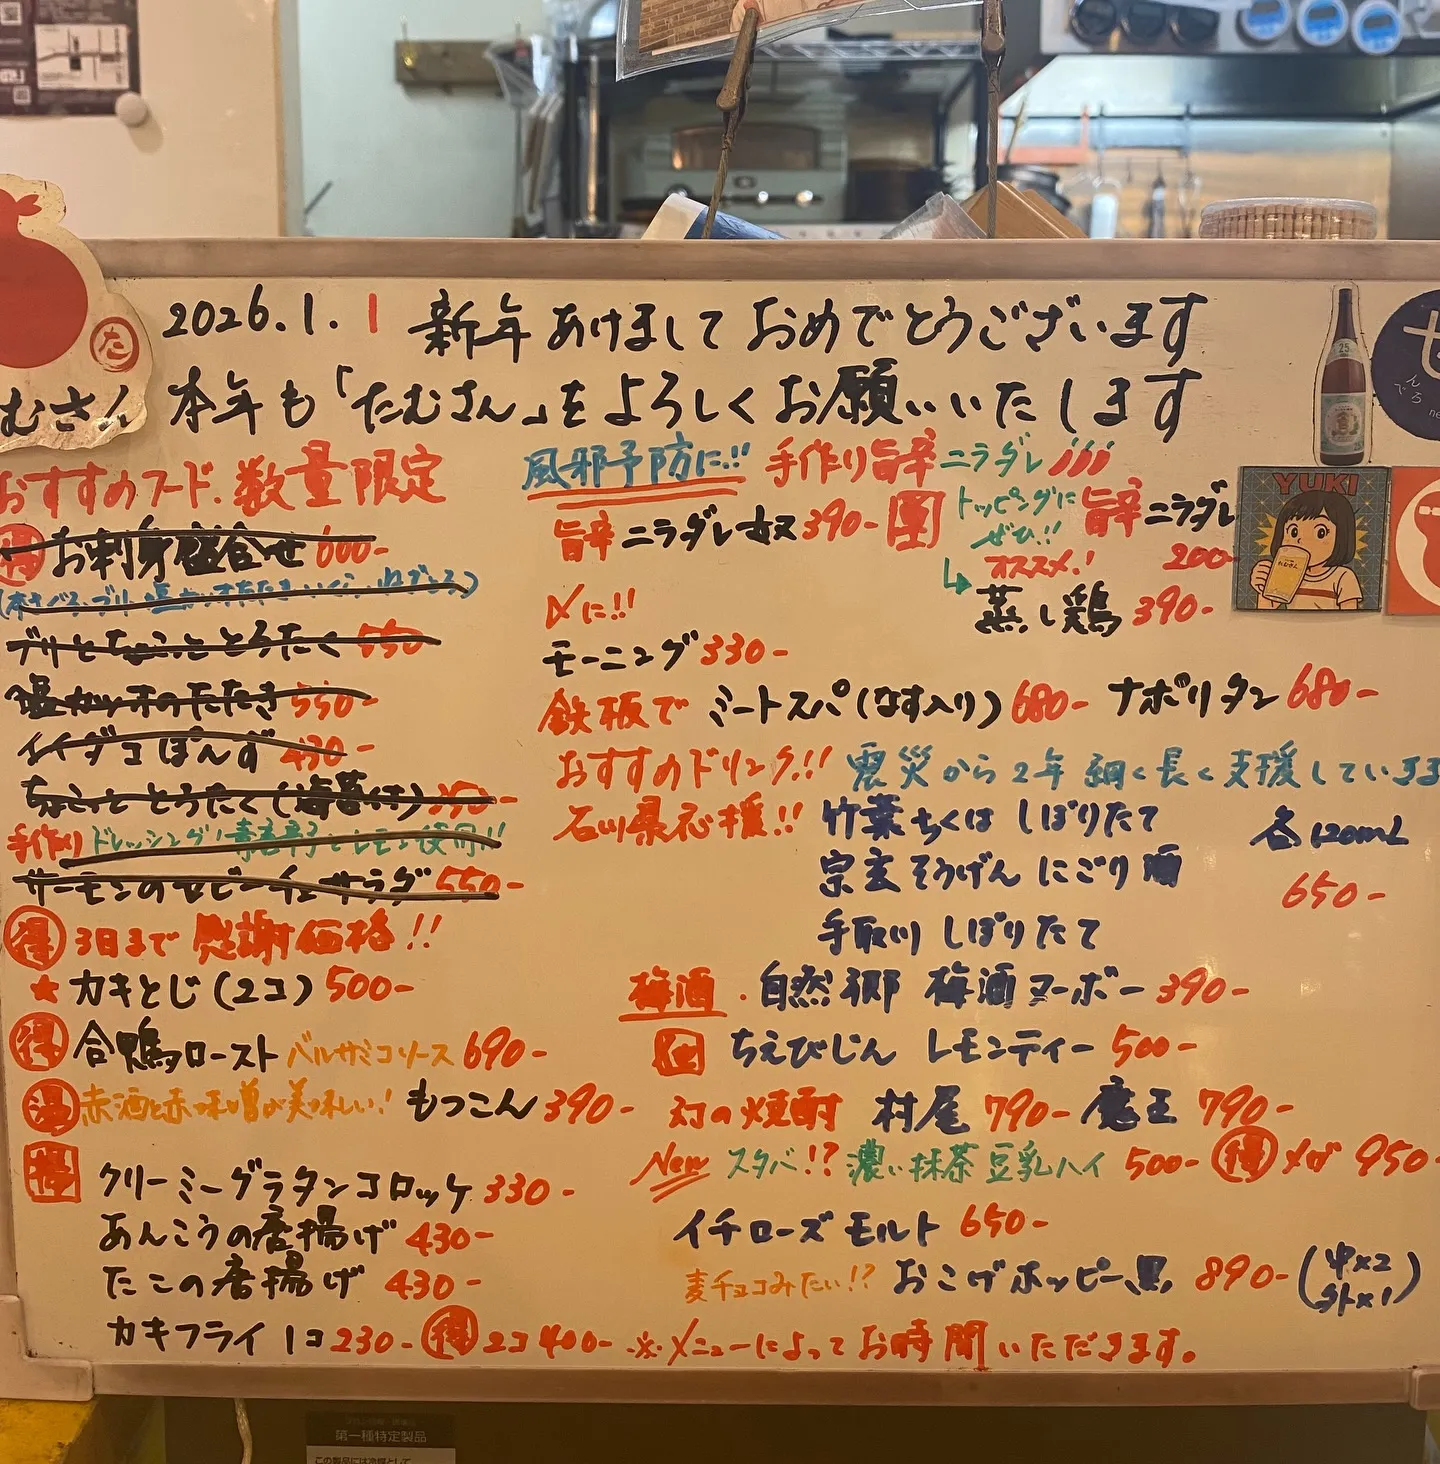 2026.1.1 新年あけましておめでとうございます
本年も「たむさん」をよろしくお願いいたします
た
むさん
おすすめフード.数量限定
得 お刺身盛合せ 600-
ブリとちょこっととろたく 550
塩カツオのたたき 550-
イイダコぽんず 430-
ちょこっととろたく(海苔付)
手作りドレッシング!
サーモンのセビーチェサラダ 550-
得 3日まで 感謝価格!!
★カキとじ(2コ) 500-
得 合鴨ロースト バルサミコソース 690-
温 赤酒と赤味噌が美味しい! もつこん 390-
揚 クリーミーグラタンコロッケ 330-
あんこうの唐揚げ 430-
たこの唐揚げ 430-
カキフライ 1コ 230- 得 2コ 400- ※メニューによってお時間いただきます。
風邪予防に!! 手作り旨辛ニラダレ!!!
旨辛ニラダレ奴 390-
トッピングに ぜひ!! 旨辛ニラダレ 200-
オススメ!
蒸し鶏 390-
〆に!!
モーニング 330-
鉄板で ミートスパ(なす入り) 680- ナポリタン 680-
おすすめのドリンク!! 震災から2年 細く長く支援しています
石川県応援!! 竹葉 ちくは しぼりたて 各120mL
宗玄 そうげん にごり酒 650-
手取川 しぼりたて
梅酒・自然郷 梅酒ヌーボー 390-
ちえびじん レモンティー 500-
幻の焼酎 村尾 790- 魔王 790-
New スタバ!? 濃い抹茶豆乳ハイ 500- 得 メガ 950-
イチローズモルト 650-
麦チョコみたい!? おこげホッピー黒 890- (中×2 外×1)
YUKI
たむさん
25
第一種特定製品